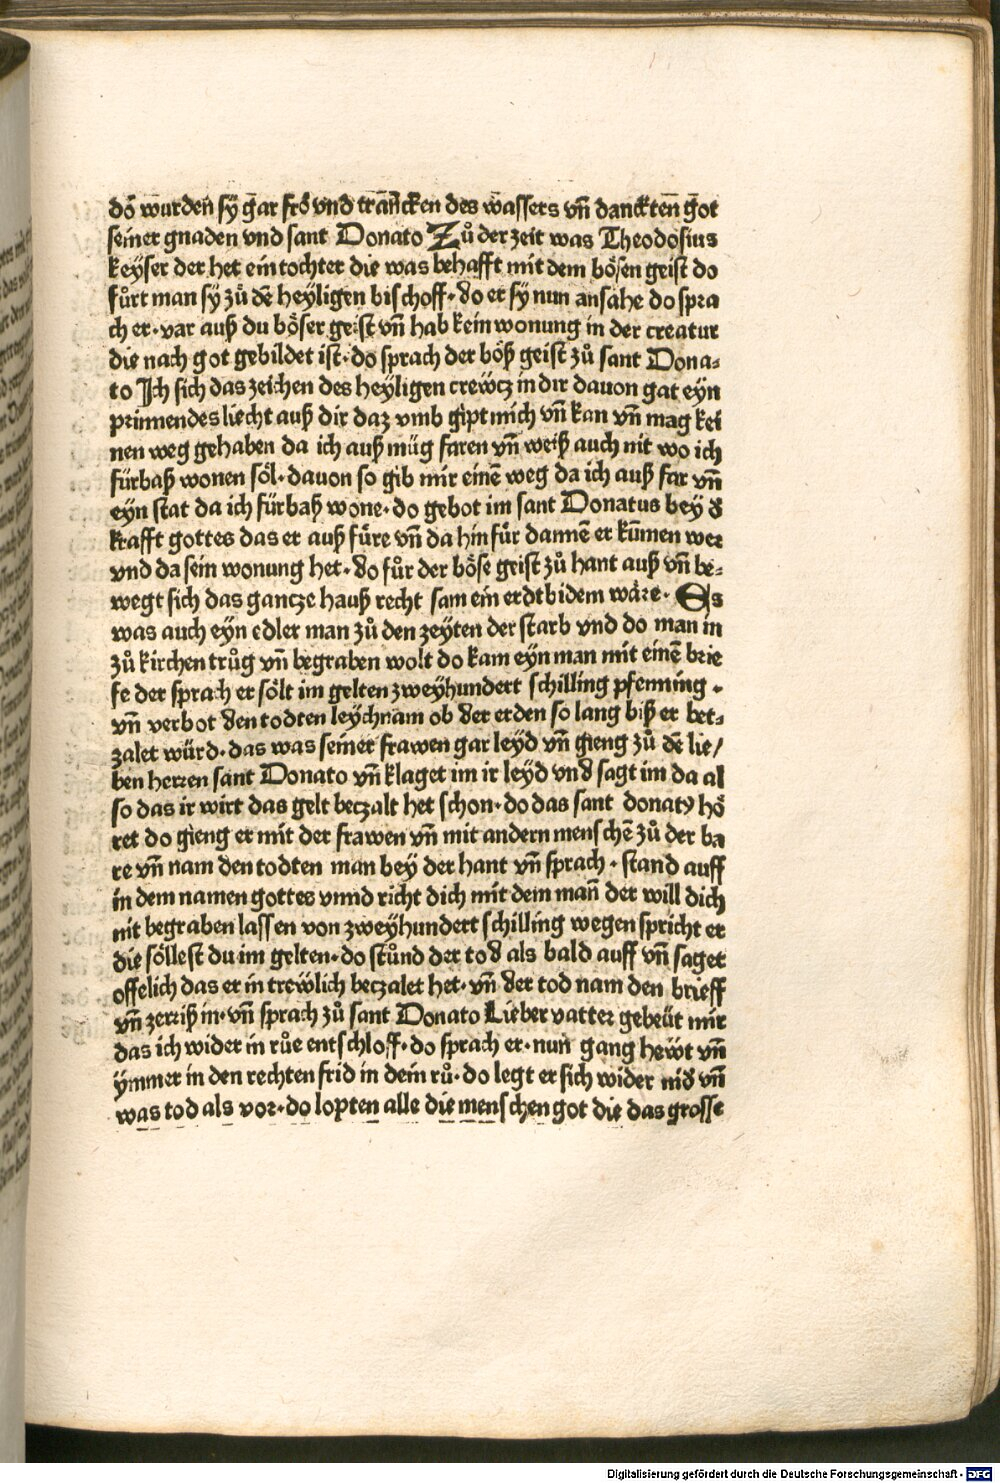 dõ wurden sÿ gar fro vnd trãncken des wassers vñ danckten got
seiner gnaden vnd sant Donato Zů der zeit was Theodosius
keÿser der het ein tochter die was behafft mit dem bösen geist do
fůrt man sÿ zů dẽ heÿligen bischoff· do er sÿ nun ansahe do spra
ch er· var auß du böser geist vñ hab kein wonung in der creatur
die nach got gebildet ist· do sprach der böß geist zů sant Dona⸗
to Ich sich das zeichen des heÿligen crewtz in dir dauon gat eyn
prinnendes liecht auß dir daz vmb gipt mich vñ kan vñ mag kei
nen weg gehaben da ich auß müg faren vñ weiß auch nit wo ich
fürbaß wonen söl· dauon so gib mir einẽ weg da ich auß far vñ
eyn stat da ich fürbaß wone· do gebot im sant Donatus bey d
krafft gottes das er auß füre vñ da hin für dannẽ er kũmen wer
vnd da sein wonung het· do fůr der böse geist zů hant auß vñ be⸗
wegt sich das gantze hauß recht sam ein erdtbidem wäre· Es
was auch eyn edler man zů den zeÿten der starb vnd do man in
zů kirchen trůg vñ begraben wolt do kam eyn man mit einẽ brie
fe der sprach er sölt im gelten zweÿhundert schilling pfenning·
vñ verbot den todten leÿchnam ob der erden so lang biß er bet⸗
zalet würd· das was seiner frawen gar leÿd vñ gieng zů dẽ lie/
ben herren sant Donato vñ klaget im ir leÿd vnd sagt im da al
so das ir wirt das gelt betzalt het schon· do das sant donatꝰ hö
ret do gieng er mit der frawen vñ mit andern menschẽ zů der ba
re vñ nam den todten man beÿ der hant vñ sprach· stand auff
in dem namen gottes vnnd richt dich mit dem mañ der will dich
nit begraben lassen von zweÿhundert schilling wegen spricht er
die söllest du im gelten· do stůnd der tod als bald auff vñ saget
offelich das er in trewlich betzalet het· vñ der tod nam den brieff
vñ zerriß in· vñ sprach zů sant Donato Lieber vatter gebeüt mir
das ich wider in růe entschloff· do sprach er· nun gang hewt vñ
ÿmmer in den rechten frid in dein rů· do legt er sich wider nid vñ
was tod als vor· do lopten alle die menschen got die das grosse
Digitalisierung gefördert durch die Deutsche Forschungsgemeinschaft - DFG